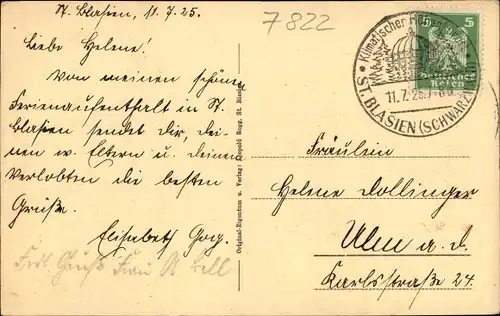 St. Blasien, 11.7.25.
7822
Liebe Helene!
Von meinem schönen
Ferienaufenthalt in St.
Blasien sendet dir, dei-
nen w. Eltern u. deinem
Verlobten die besten
Grüße.
Elisabeth Gog.
Frau
Original-Eigentum u. Verlag: Leopold Rugg, St. Blasien
Klimatischer
ST. BLASIEN (SCHWARZW
11.7.25.
5 5
Deutsches Reich
Fräulein
Helene Dollinger
Ulm a. d.
Karlsstraße 24.